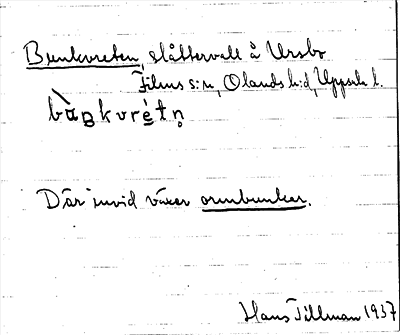 Bunkvreten, slåttervall å Ursbo
Films s:n, Olands h:d, Uppsala l.
bàŋkvrétn̥
Där invid växer ormbunkar.
Hans Tillman 1937